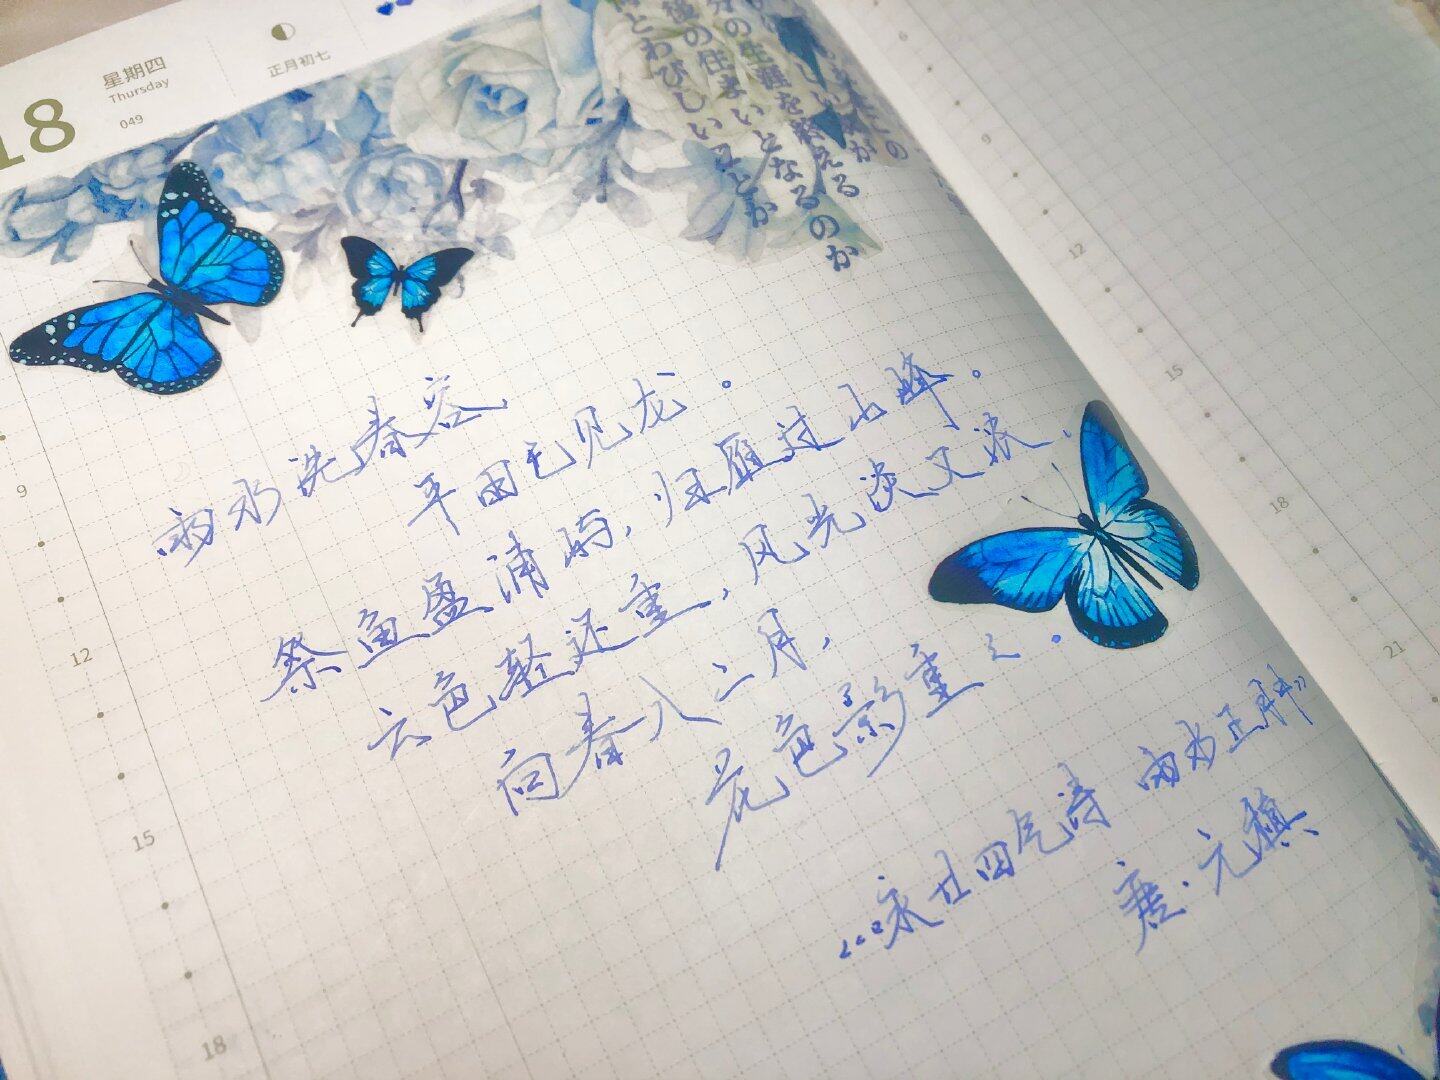 18
星期四
Thursday
049
正月初七
の住まいとなるのか
の生涯を終える
とわびしいことか
雨水洗春容，
平田已见龙。
祭鱼盈浦屿，归雁过山峰。
云色轻还重，风光淡又浓。
向春入二月，
花色影重之。
《咏廿四气诗 雨水正月中》
唐·元稹
9
12
15
18
6
9
12
15
18
21